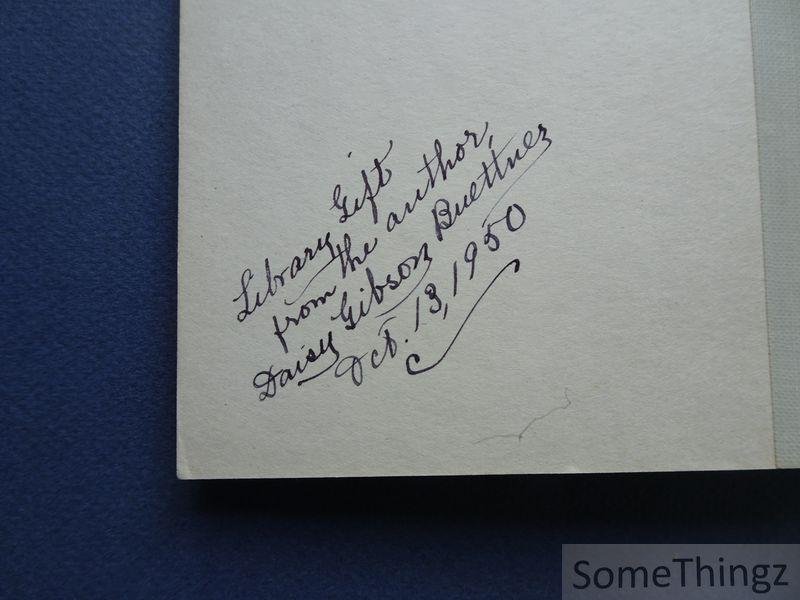 Library Gift
from the author,
Daisy Gibson Buettner
Oct. 13, 1950
SomeThingz